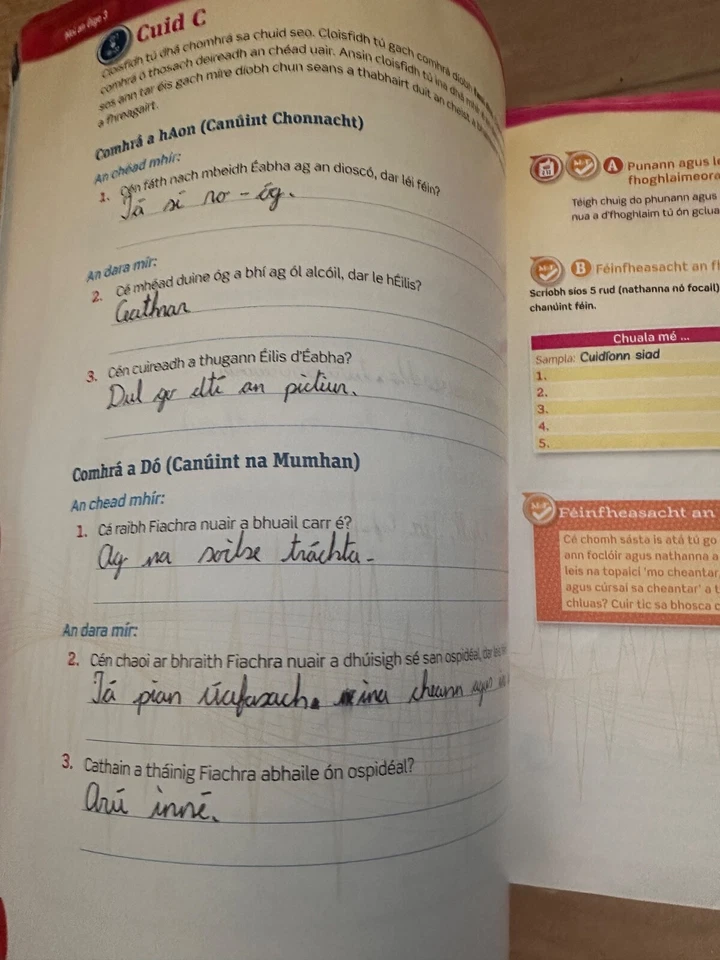 Cuid C
Cloisfidh tú dhá chomhrá sa chuid seo. Cloisfidh tú gach comhrá díobh
comhrá ó thosach deireadh an chéad uair. Ansin cloisfidh tú ina dhá mhír é
sos ann tar éis gach míre díobh chun seans a thabhairt duit an cheist a
a fhreagairt.
Comhrá a hAon (Canúint Chonnacht)
An chéad mhír:
1. Cén fáth nach mbeidh Éabha ag an dioscó, dar léi féin?
Tá sí ro-óg.
An dara mír:
2. Cé mhéad duine óg a bhí ag ól alcóil, dar le hÉilis?
Ceathrar
3. Cén cuireadh a thugann Éilis d'Éabha?
Dul go dtí an pictiúr.
Comhrá a Dó (Canúint na Mumhan)
An chead mhír:
1. Cá raibh Fiachra nuair a bhuail carr é?
Ag na soilse tráchta.
An dara mír:
2. Cén chaoi ar bhraith Fiachra nuair a dhúisigh sé san ospidéal, dar leis
Tá pian uafasach ina cheann agus
3. Cathain a tháinig Fiachra abhaile ón ospidéal?
Arú inné.
A Punann agus
fhoghlaimeora
Téigh chuig do phunann agus
nua a d'fhoghlaim tú ón gclua
B Féinfheasacht an f
Scríobh síos 5 rud (nathanna nó focail)
chanúint féin.
Chuala mé ...
Sampla: Cuidíonn siad
1.
2.
3.
4.
5.
Féinfheasacht an
Cé chomh sásta is atá tú go
ann foclóir agus nathanna a
leis na topaicí 'mo cheantar
agus cúrsaí sa cheantar' a t
chluas? Cuir tic sa bhosca c